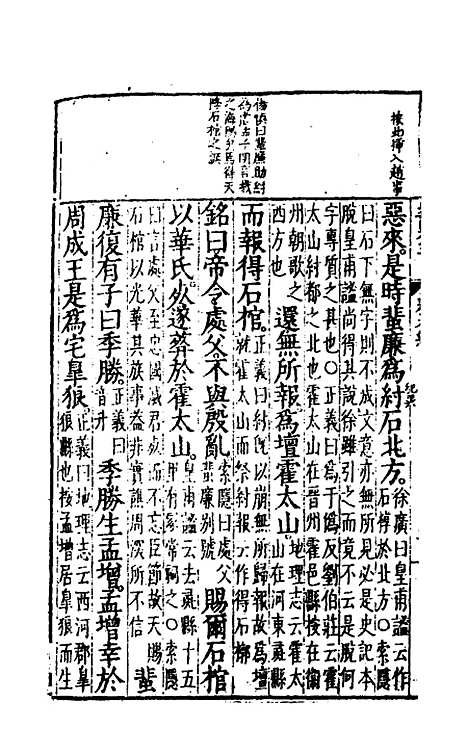 按此揷入趙事
楊慎曰蜚廉助紂
為虐孟子明言戮
之海隅烏得天
賜石棺之誣
惡來。是時蜚廉為紂石北方。徐廣曰皇甫謐云作石椁於北方〇索隱
曰石下無字則不成文意亦無所見必是史記本
脫皇甫謐尚得其說徐雖引之而竟不云是脫何
字專質之甚也〇正義曰為于偽反劉伯莊云霍
太山紂都之北也霍太山在晉州霍邑縣按在衛
州朝歌之西方也還無所報為壇霍太山地理志云霍太山在河東彘縣
而報得石棺。正義曰紂既以崩無所歸報故為壇就霍太山而祭紂報云作得石槨
銘曰帝令處父。不與殷亂索隱曰處父蜚廉別號賜爾石棺
以華氏。死遂葬於霍太山。皇甫謐云去彘縣十五里有冢常祠之〇索隱
曰言處父至忠國滅君死而不忘臣節故天賜
石棺以光華其族事蓋非實譙周深所不信蜚
廉復有子曰季勝。正義曰音升季勝生孟增。孟增幸於
周成王是為宅皐狼。正義曰地理志云西河郡皐狼縣也按孟增居皐狼而生